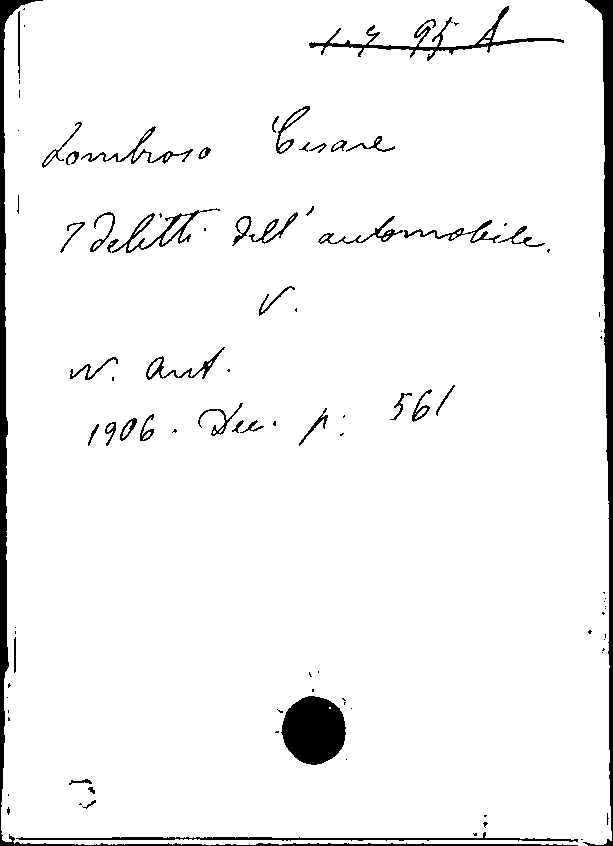 1.7.95.A
Lombroso Cesare
I delitti dell' automobile.
V.
N. Ant.
1906. Dec. p: 561